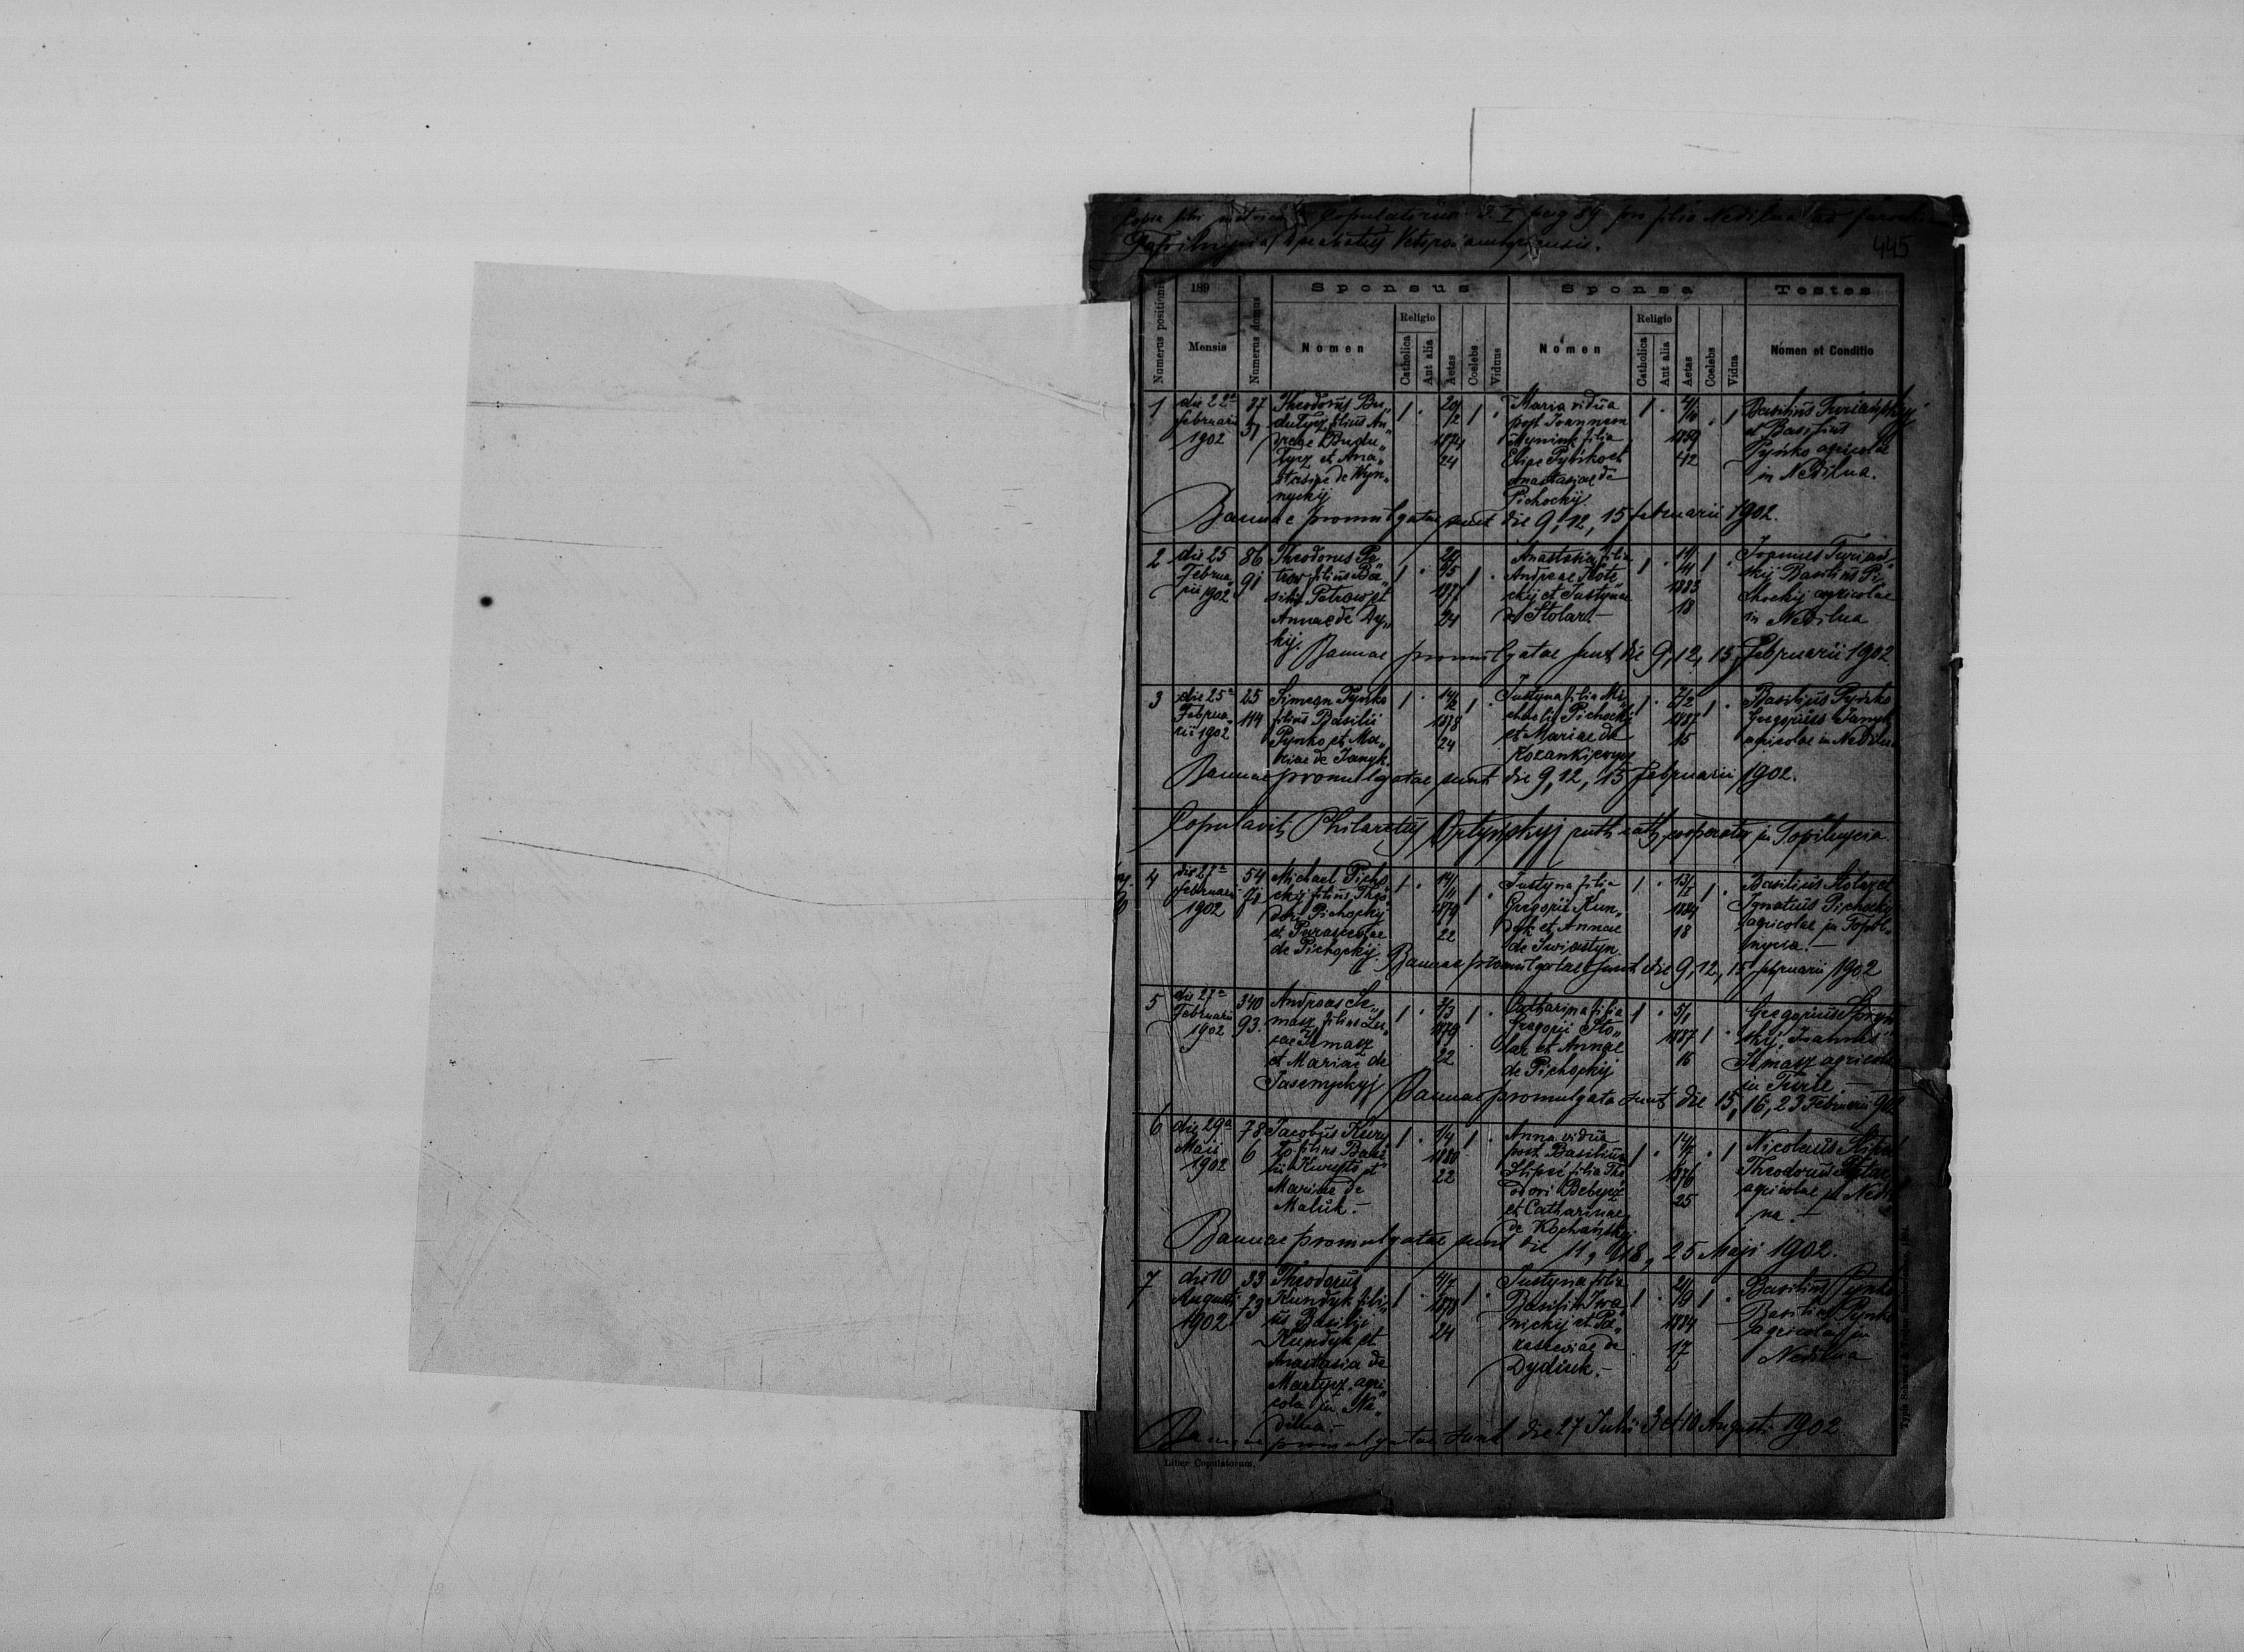 Copia libri metrices Copulatorum T. I pag 89 pro filia Nedilna ad parochiam
Topilnycia Decanatus Vetspolamborgensis.
445
Numerus positionis
189
Mensis
Numerus domus
Sponsus
Nomen
Religio
Catholica
Aut alia
Aetas
Coelebs
Viduus
Sponsa
Nomen
Religio
Catholica
Aut alia
Aetas
Coelebs
Vidua
Testes
Nomen et Conditio
1
die 22a
februarii
1902
87
37
Theodorus Bu„
filius An„
dreae
et Ana„
stasiae de Wyn„
nyckij
1 . 29/2 1 .
1872
24
Maria vidua
post Joannem
filia
Eliae Pynko et
Anastasiae de
Pichockij
1 . 4/10 . 1
1859
42
Basilius Turianskyj
et Basilius
Pynko agricolae
in Nedilna.
Bannae promulgatae sunt die 9, 12, 15 februarii 1902.
2
die 25
Februa„
rii 1902
86
91
Theodorus Pe„
trow filius Ba„
silii Petrow et
Annae de Dy„
kij.
1 . 1 .
1877
24
Anastasia filia
Andreae
ckij et Justynae
de Stolar.—
1 . 1 .
1883
18
Joannes Turian„
skij Basilius Pi„
chockij agricolae
in Nedilna
Bannae promulgatae sunt die 9, 12, 15 Februarii 1902
3
die 25a
Februa„
rii 1902
25
114
Simeon Pynko
filius Basilii
Pynko et Ma„
riae de Janyk.
1 . 14/2 1 .
1878
24
Justyna filia Mi„
chaelis Pichockij
et Mariae de
Kozankiewycz
1 . 7/2 1 .
1887
15
Basilius Pynko
Gregorius Janyk
agricolae in Nedilna
Bannae promulgatae sunt die 9, 12, 15 februarii 1902.
Copulavit Philaretus Ortynskyj ruth. cath. cooperator in Topilnycia
4
die 27a
februarii
1902
54
71
Michael Picho„
ckij filius Theo„
dori Pichockij
et Parascevae
de Pichockij.
1 . 14/11 1 .
1879
22
Justyna filia
Gregorii Kun„
dyk et Annae
de Swiastyn
1 . 13/1 1 .
1884
18
Basilius Stolar et
Ignatius Pichockij
agricolae in Topol„
nycia.—
Bannae promulgatae sunt die 9, 12, 15 februarii 1902
5
die 27a
Februarii
1902
340
93.
Andreas Il„
masz filius Lu„
cae Ilmasz
et Mariae de
Jasemyckyj
1 . 3/3 1 .
1879
22
Catharina filia
Gregorii Sto„
lar et Annae
de Pichockij
1 . 5/1 1 .
1887
16
Gregorius
skij, Joannes
Ilmasz agricolae
in Turie.—
Bannae promulgatae sunt die 15, 16, 23 Februarii 902
6
die 29a
Maii
1902
78
6
Jacobus Kury„
lo filius Basi„
lii Kuryllo et
Mariae de
Maluk.—
1 . 1/4 1 .
1880
22
Anna vidua
post Basilium
filia The„
odori
et Catharinae
de Kochanskij
1 . 14/7 . 1
1876
25
Nicolaus
Theodorus
agricolae in Nedil„
na.—
Bannae promulgatae sunt die 11, 18, 25 Maji 1902.
7
die 10
Augusti
1902
33
73
Theodorus
Kundyk fili„
us Basilii
Kundyk et
Anastasia de
Martycz, agri„
cola in Ne„
dilna.—
1 . 4/7 1 .
1878
24
Justyna filia
Basilii Iwa„
nickij et Pa„
rasceviae de
Dydiuk.—
1 . 1 .
1884
17
Basilius Pynko
Basilius Pynko
agricolae in
Nedilna
Bannae promulgatae sunt die 27 Julii 3 et 10 Augusti 1902
Liber Copulatorum.